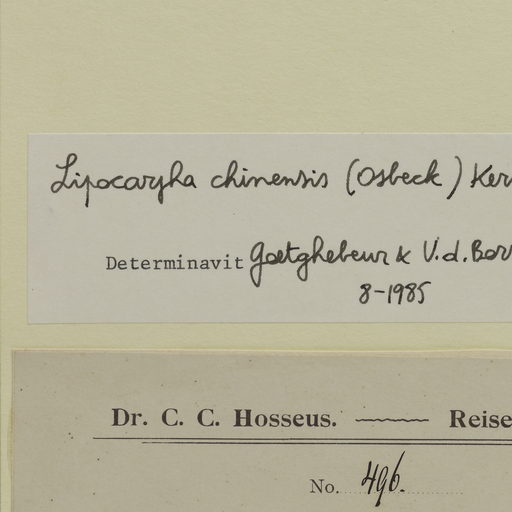 Lipocarpha chinensis (Osbeck) Ker
Determinavit Goetghebeur & V.d.Bor
8-1985
Dr. C. C. Hosseus. Reise
No. 496.